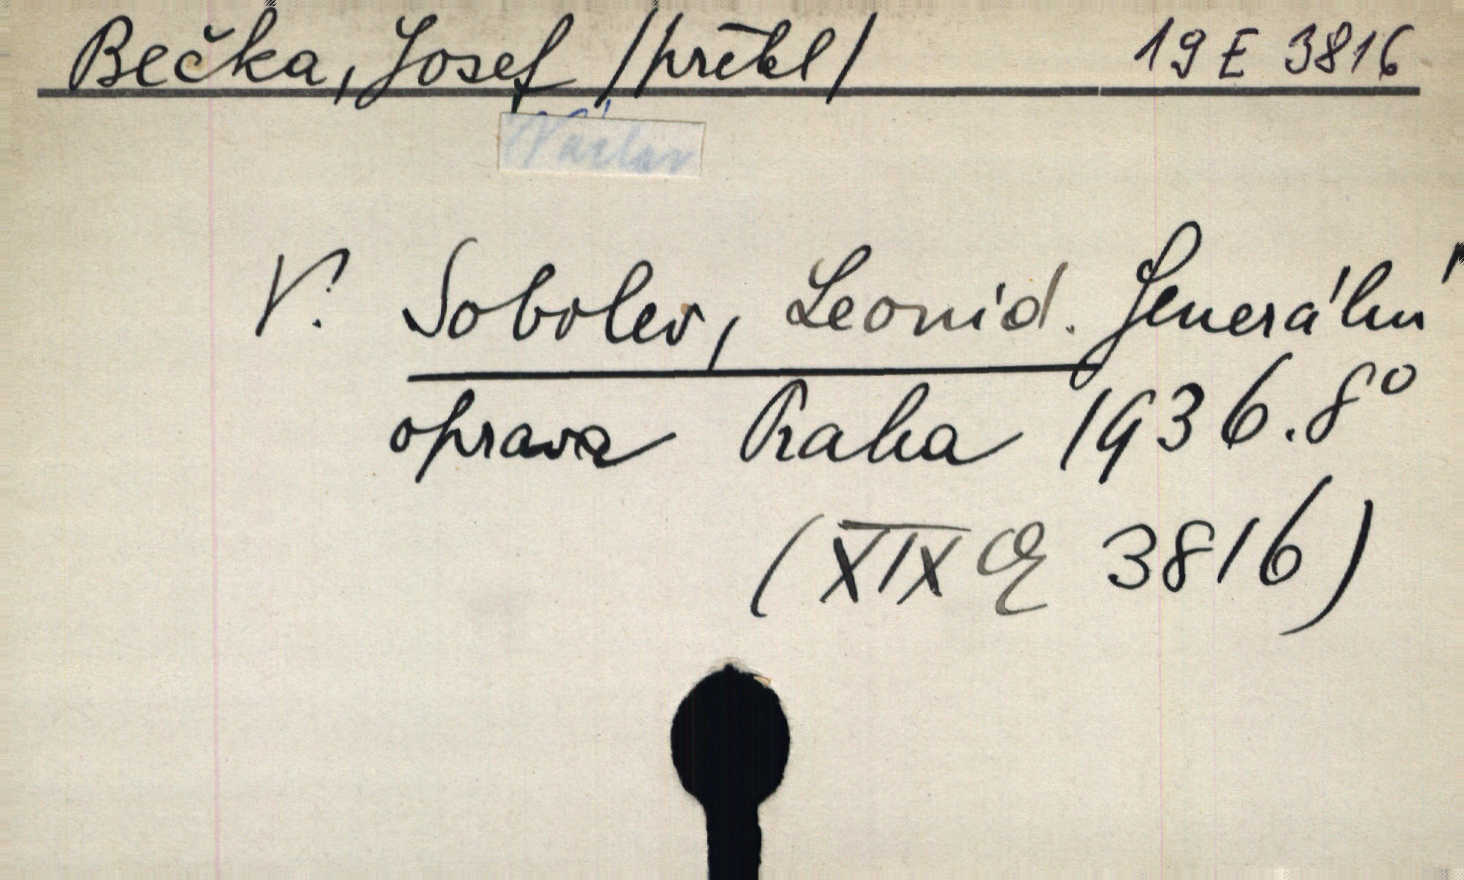 Bečka, Josef /překl/ 19 E 3816
Václav
V. Sobolev, Leonid. Generální
oprava Praha 1936. 8°
(XIX E 3816)